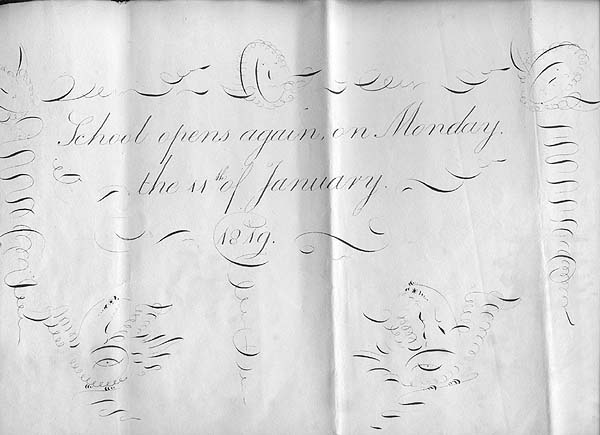 School opens again, on Monday.
the 11th of January.
1819.